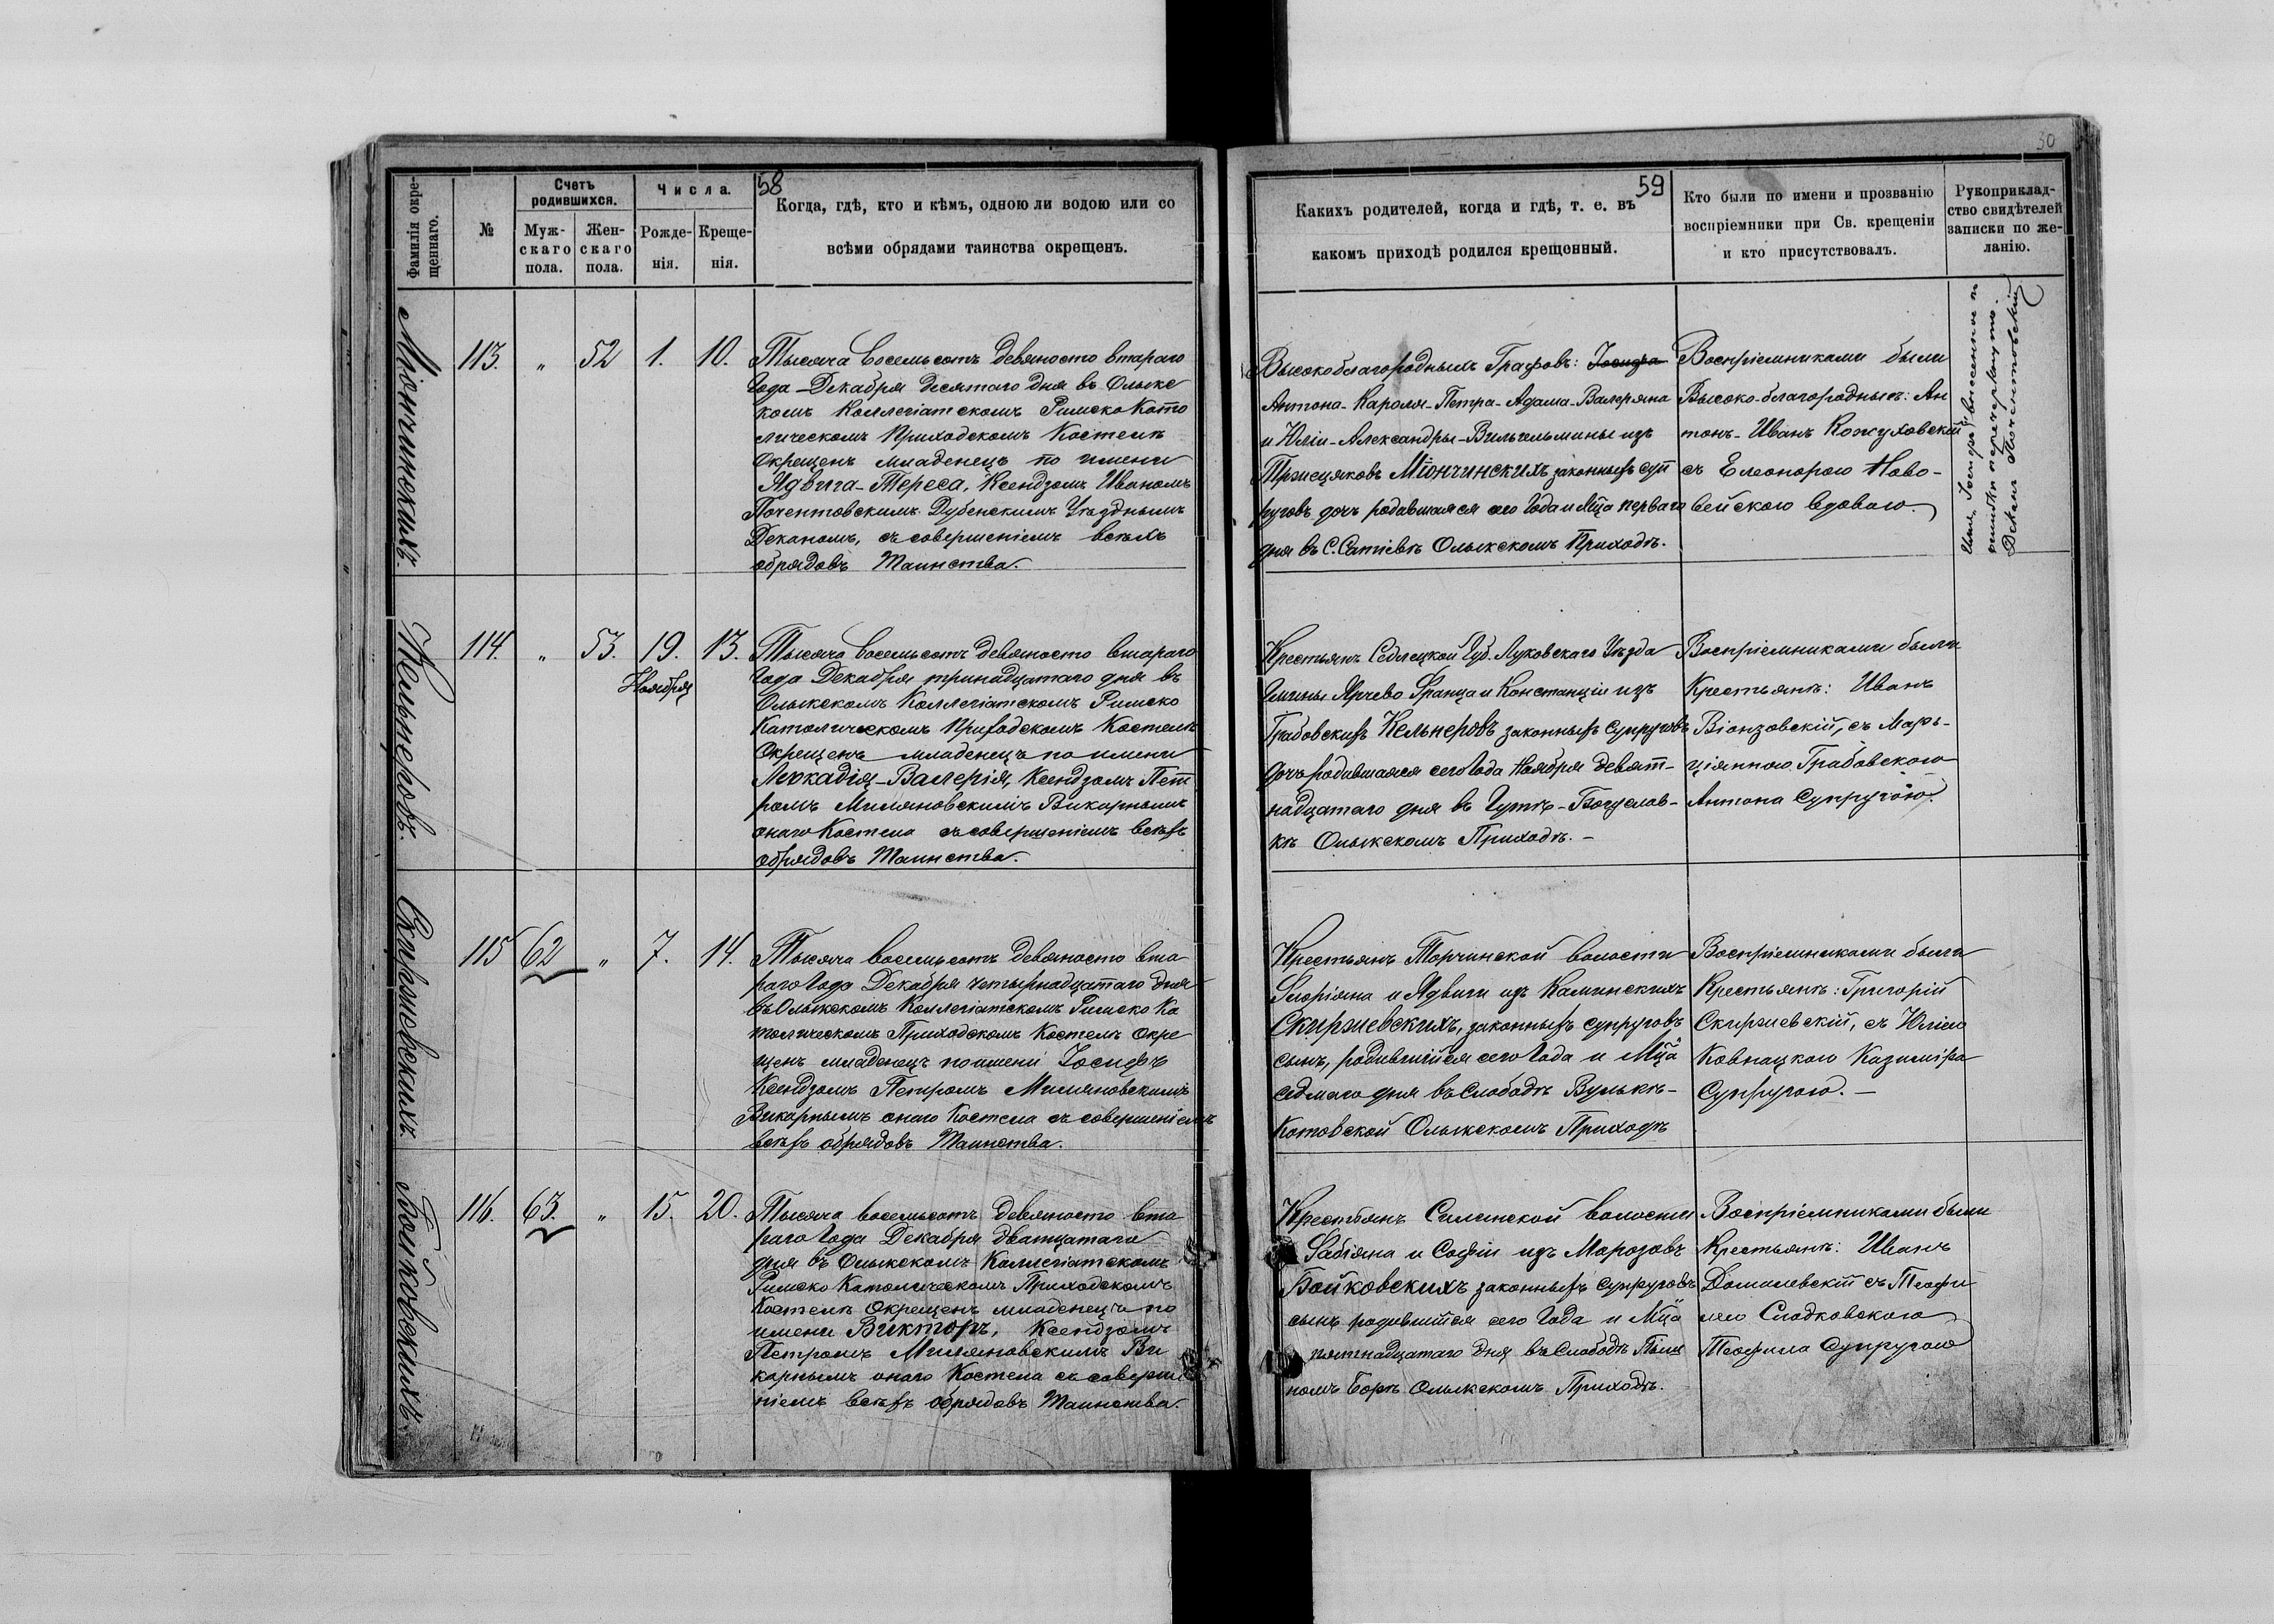 30
58
Фамилія окре-
щеннаго.
№
Счетъ
родившихся.
Муж-
скаго
пола.
Жен-
скаго
пола.
Числа.
Рожде-
нія.
Креще-
нія.
Когда, гдѣ, кто и кѣмъ, одною ли водою или со
всѣми обрядами таинства окрещенъ.
59
Какихъ родителей, когда и гдѣ, т. е. въ
какомъ приходѣ родился крещенный.
Кто были по имени и прозванію
воспріемники при Св. крещеніи
и кто присутствовалъ.
Рукоприклад-
ство свидѣтелей
записки по же-
ланію.
Міончинскихъ.
113. " 52 1. 10.
Тысяча Восемьсотъ девяносто втараго
Года Декабря десятаго дня въ Олыкс
комъ Коллегіатскомъ Римско Като
лическомъ Приходскомъ Костелѣ
Окрещенъ младенецъ по имени
Ядвига-Тереса, Ксендзомъ Иваномъ
Почентовскимъ Дубенскимъ Уѣзднымъ
Деканомъ, съ совершеніемъ всѣхъ
обрядовъ Таинства.
Высокоблагородныхъ Графовъ: Іосифа
Антона-Кароля-Петра-Адама-Валеріяна
и Юліи-Александры-Вильгельмины изъ
Пржецяковъ Міончинскихъ законныхъ суп
руговъ дочь родившаяся сего Года и Мца перваго
дня въ С. Сатіевѣ Олыкскомъ Приходѣ.
Воспріемниками были
Высоко-благородные: Ан
тонъ-Иванъ Кожуховскій
съ Елеонорою Ново-
вейскою вдовою.
Имя „Іосифъ“ внесенное по
ошибкѣ перечеркнуто.
Деканъ Почентовскій
Кельнеровъ.
114. " 53. 19. 13.
Ноября
Тысяча Восемьсотъ девяносто втараго
Года Декабря тринадцатаго дня въ
Олыкскомъ Коллегіатскомъ Римско
Католическомъ Приходскомъ Костелѣ
Окрещенъ младенецъ по имени
Леокадія-Валерія, Ксендзомъ Пет
ромъ Миляновскимъ Викарнымъ
онаго Костела съ совершеніемъ всѣхъ
обрядовъ Таинства.
Крестьянъ Седлецкой Губ. Луковскаго Уѣзда
Гмины Ярчево Франца и Констанціи изъ
Грабовскихъ Кельнеровъ законныхъ супруговъ
дочь родившаяся сего Года Ноября девят-
надцатаго дня въ Гутѣ-Богуслав-
кѣ Олыкскомъ Приходѣ.-
Воспріемниками были
Крестьянѣ: Иванъ
Віонзовскій, съ Марь-
ціянною Грабовскою
Антона Супругою.
Скиржевскихъ.
115 62 " 7. 14.
Тысяча восемьсотъ девяносто вта
раго Года Декабря четырнадцатаго дня
въ Олыкскомъ Коллегіатскомъ Римско Ка
толическомъ Приходскомъ Костелѣ Окре
щенъ младенецъ по имени Іосифъ
Ксендзомъ Петромъ Миляновскимъ
Викарнымъ онаго Костела съ совершеніемъ
всѣхъ обрядовъ Таинства.
Крестьянъ Торчинской волости
Флоріяна и Ядвиги изъ Каминскихъ
Скиржевскихъ, законныхъ супруговъ
сынъ, родившійся сего Года и Мца
седмаго дня въ Слободѣ Вулькѣ-
Котовской Олыкскомъ Приходѣ
Воспріемниками были
Крестьянѣ: Григорій
Скиржевскій, съ Юліею
Ковнацкою Казиміра
Супругою.-
Бойковскихъ.
116. 63. " 15. 20.
Тысяча восемьсотъ девяносто вта
раго Года Декабря двадцатаго
дня въ Олыкскомъ Коллегіатскомъ
Римско Католическомъ Приходскомъ
Костелѣ Окрещенъ младенецъ по
имени Викторъ, Ксендзомъ
Петромъ Миляновскимъ Ви
карнымъ онаго Костела съ соверше
ніемъ всѣхъ обрядовъ Таинства.
Крестьянъ Силинской волости
Фабіяна и Софіи изъ Морозовъ
Бойковскихъ законныхъ супруговъ
сынъ родившійся сего Года и Мца
пятнадцатаго дня въ Слободѣ
номъ Борѣ Олыкскомъ Приходѣ.
Воспріемниками были
Крестьянѣ: Иванъ
Домалевскій съ Теофи
лею Сладковскою
Теофила Супругою